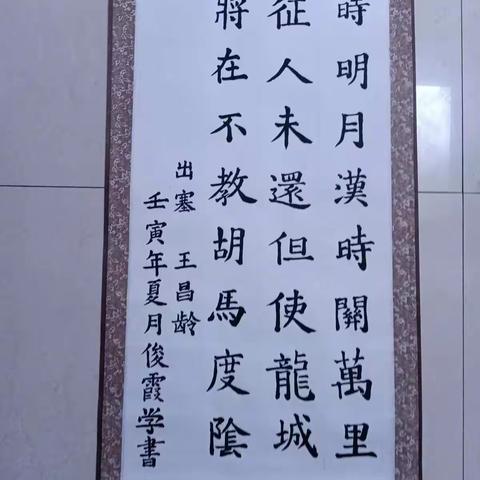 時明月漢時關萬里
征人未還但使龍城
將在不教胡馬度陰
出塞 王昌龄
壬寅年夏月俊霞学書